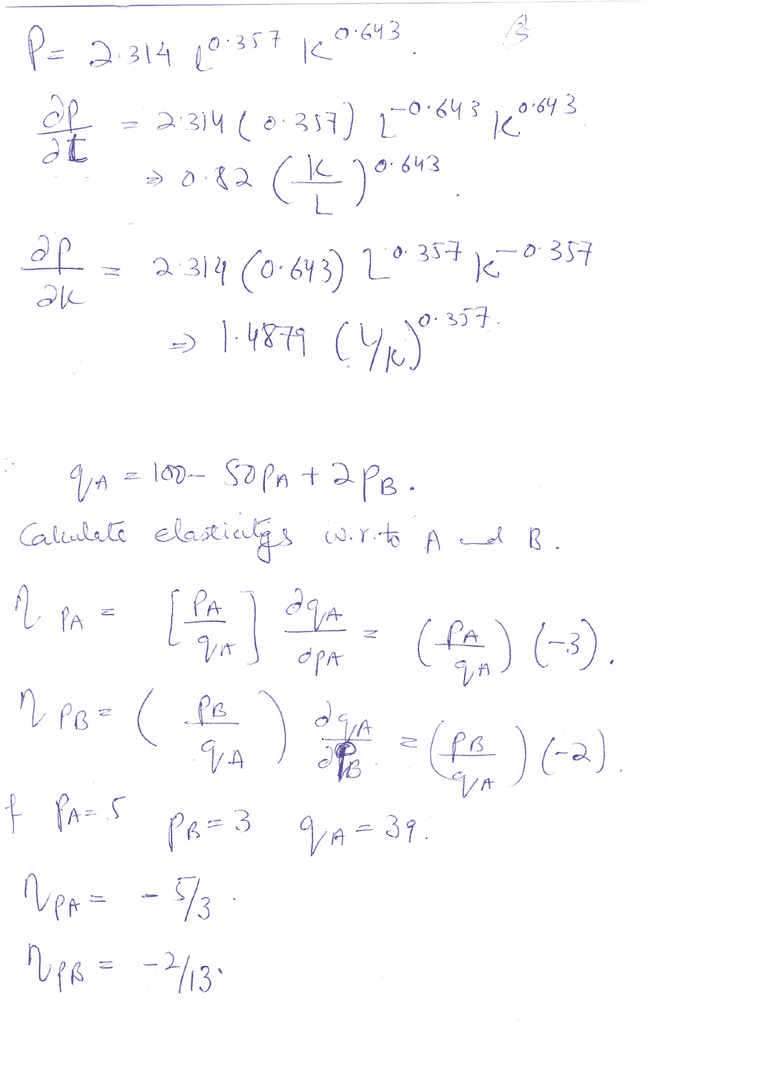 P = 2.314 L^0.357 K^0.643.
∂P/∂L = 2.314 (0.357) L^-0.643 K^0.643
⇒ 0.82 (K/L)^0.643.
∂P/∂K = 2.314 (0.643) L^0.357 K^-0.357
⇒ 1.4879 (L/K)^0.357.
q_A = 100 - 50 p_A + 2 p_B.
Calculate elasticitys w.r.to A and B.
η_PA = [p_A/q_A] ∂q_A/∂p_A = (p_A/q_A) (-3).
η_PB = (p_B/q_A) ∂q_A/∂p_B = (p_B/q_A) (-2).
f p_A = 5 p_B = 3 q_A = 39.
η_PA = - 5/3.
η_PB = -2/13.